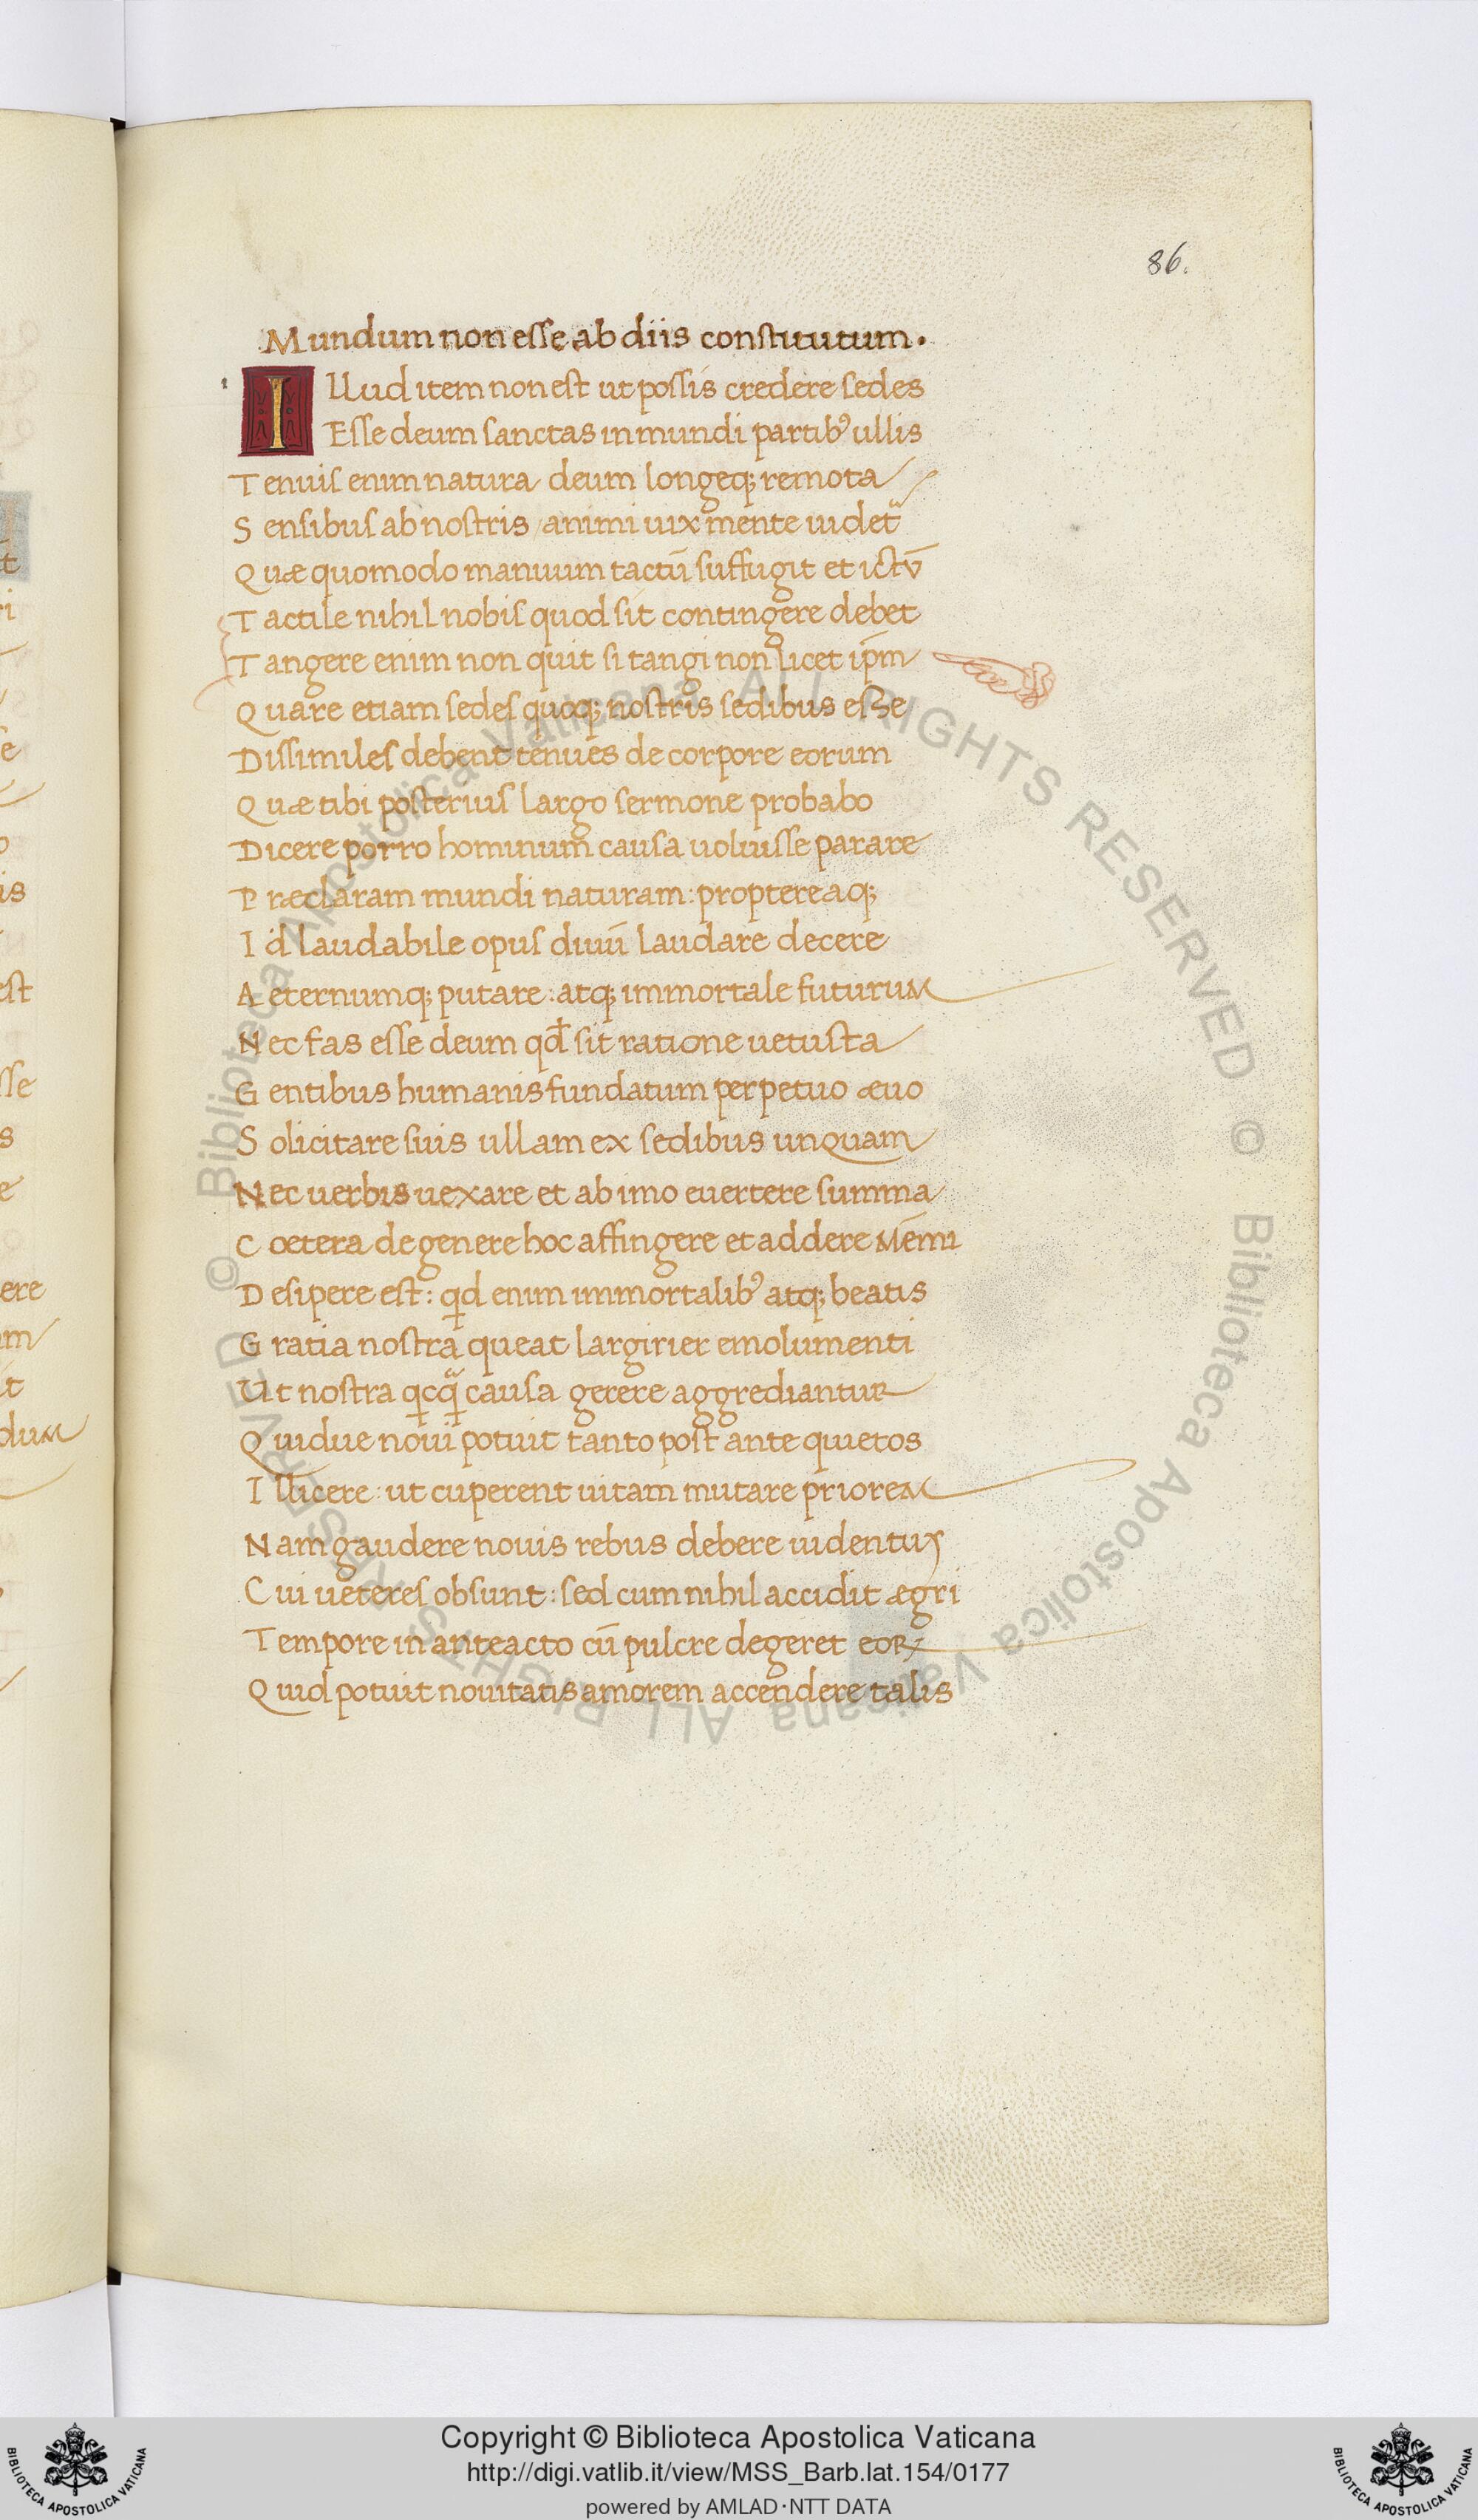 86.
Mundum non esse ab diis constitutum.
ILlud item non est ut possis credere sedes
Esse deum sanctas in mundi partibꝰ ullis
Tenuis enim natura deum longeq; remota
Sensibus ab nostris animi uix mente uidet᷑
Quæ quomodo manuum tactū suffugit et ictū
Tactile nihil nobis quod sit contingere debet
Tangere enim non quit si tangi non licet ip̄m
Quare etiam sedes quoq; nostris sedibus esse
Dissimiles debent tenues de corpore eorum
Quæ tibi posterius largo sermone probabo
Dicere porro hominum causa uoluisse parare
Præclaram mundi naturam: proptereaq;
Id laudabile opus diuū laudare decere
Aeternumq; putare: atq; immortale futurum
Nec fas esse deum qđ sit ratione uetusta
Gentibus humanis fundatum perpetuo æuo
Solicitare suis ullam ex sedibus unquam
Nec uerbis uexare et ab imo euertere summa
Coetera de genere hoc affingere et addere Mēmi
Desipere est: qd enim immortalibꝰ atq; beatis
Gratia nostra queat largirier emolumenti
Ut nostra qcq̃ causa gerere aggrediantur
Quidue noui potuit tanto post ante quietos
Illicere: ut cuperent uitam mutare priorem
Nam gaudere nouis rebus debere uidentur
Cui ueteres obsunt: sed cum nihil accidit ægri
Tempore in anteacto cū pulcre degeret eoꝝ
Quid potuit nouitatis amorem accendere talis
© Biblioteca Apostolica Vaticana ALL RIGHTS RESERVED © Biblioteca Apostolica Vaticana ALL RIGHTS RESERVED
Copyright © Biblioteca Apostolica Vaticana
http://digi.vatlib.it/view/MSS_Barb.lat.154/0177
powered by AMLAD·NTT DATA
BIBLIOTECA APOSTOLICA VATICANA
BIBLIOTECA APOSTOLICA VATICANA